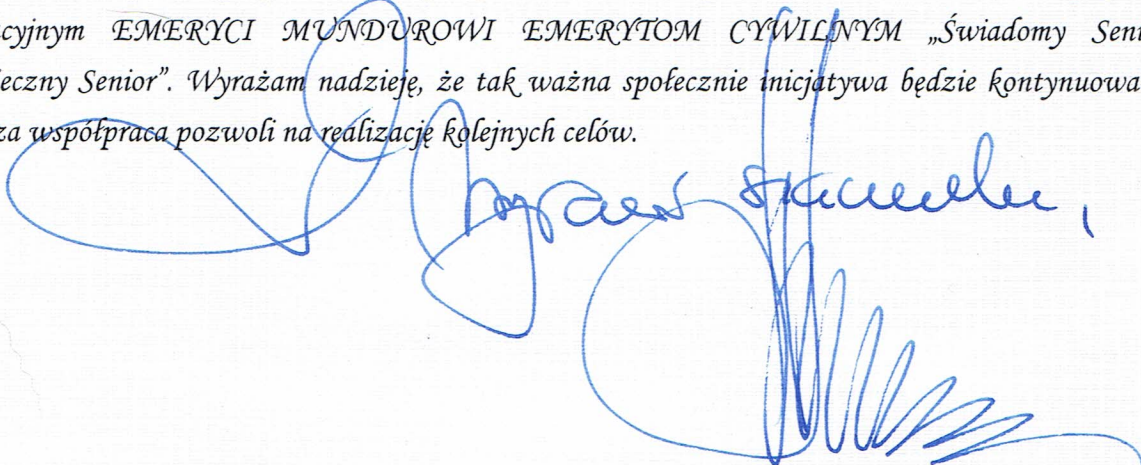 cyjnym EMERYCI MUNDUROWI EMERYTOM CYWILNYM „Świadomy Seni
eczny Senior”. Wyrażam nadzieję, że tak ważna społecznie inicjatywa będzie kontynuowa
za współpraca pozwoli na realizację kolejnych celów.
Z wyrazami szacunku,